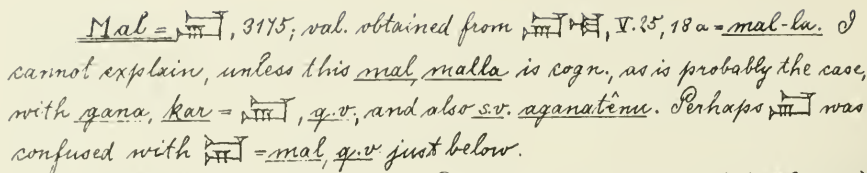 Mal = , 3175; val. obtained from , V. 25, 18 a = mal-la. I
cannot explain, unless this mal, malla is cogn., as is probably the case,
with gana, kar = , q.v., and also s.v. aganatênu. Perhaps was
confused with = mal, q.v. just below.